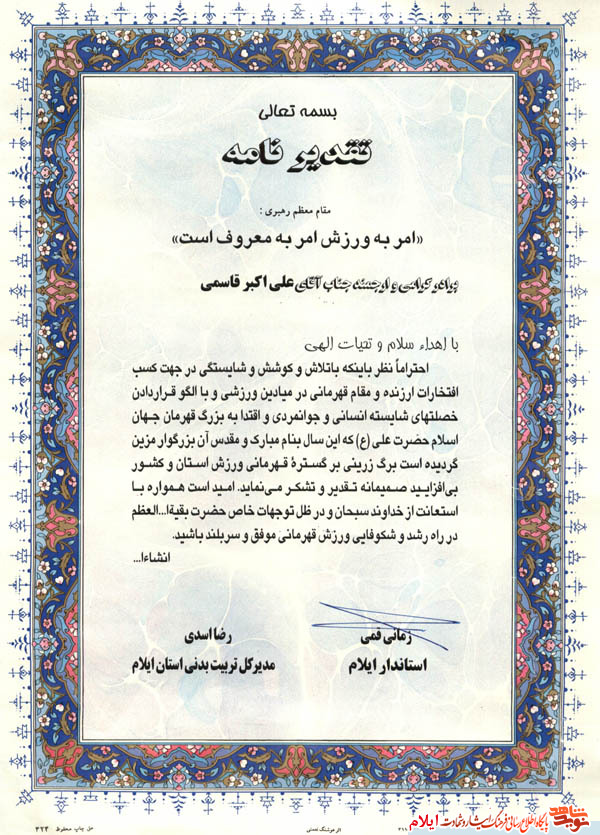 بسمه تعالی
تقدیر نامه
مقام معظم رهبری :
«امر به ورزش امر به معروف است»
برادر گرامی و ارجمند جناب آقای علی اکبر قاسمی
با اهداء سلام و تحیات الهی
احتراماً نظر باینکه باتلاش و کوشش و شایستگی در جهت کسب
افتخارات ارزنده و مقام قهرمانی در میادین ورزشی و با الگو قراردادن
خصلتهای شایسته انسانی و جوانمردی و اقتدا به بزرگ قهرمان جهان
اسلام حضرت علی (ع) که این سال بنام مبارک و مقدس آن بزرگوار مزین
گردیده است برگ زرینی بر گسترهٔ قهرمانی ورزش استان و کشور
بی‌افزایید صمیمانه تقدیر و تشکر می‌نماید. امید است همواره با
استعانت از خداوند سبحان و در ظل توجهات خاص حضرت بقیةا...العظم
در راه رشد و شکوفایی ورزش قهرمانی موفق و سربلند باشید.
انشاءا...
زمانی قمی
استاندار ایلام
رضا اسدی
مدیرکل تربیت بدنی استان ایلام
اثر هوشنگ نعمتی
حق چاپ محفوظ
۴۲۴
نوید شاهد
پایگاه اطلاع رسانی فرهنگ ایثار و شهادت ایلام